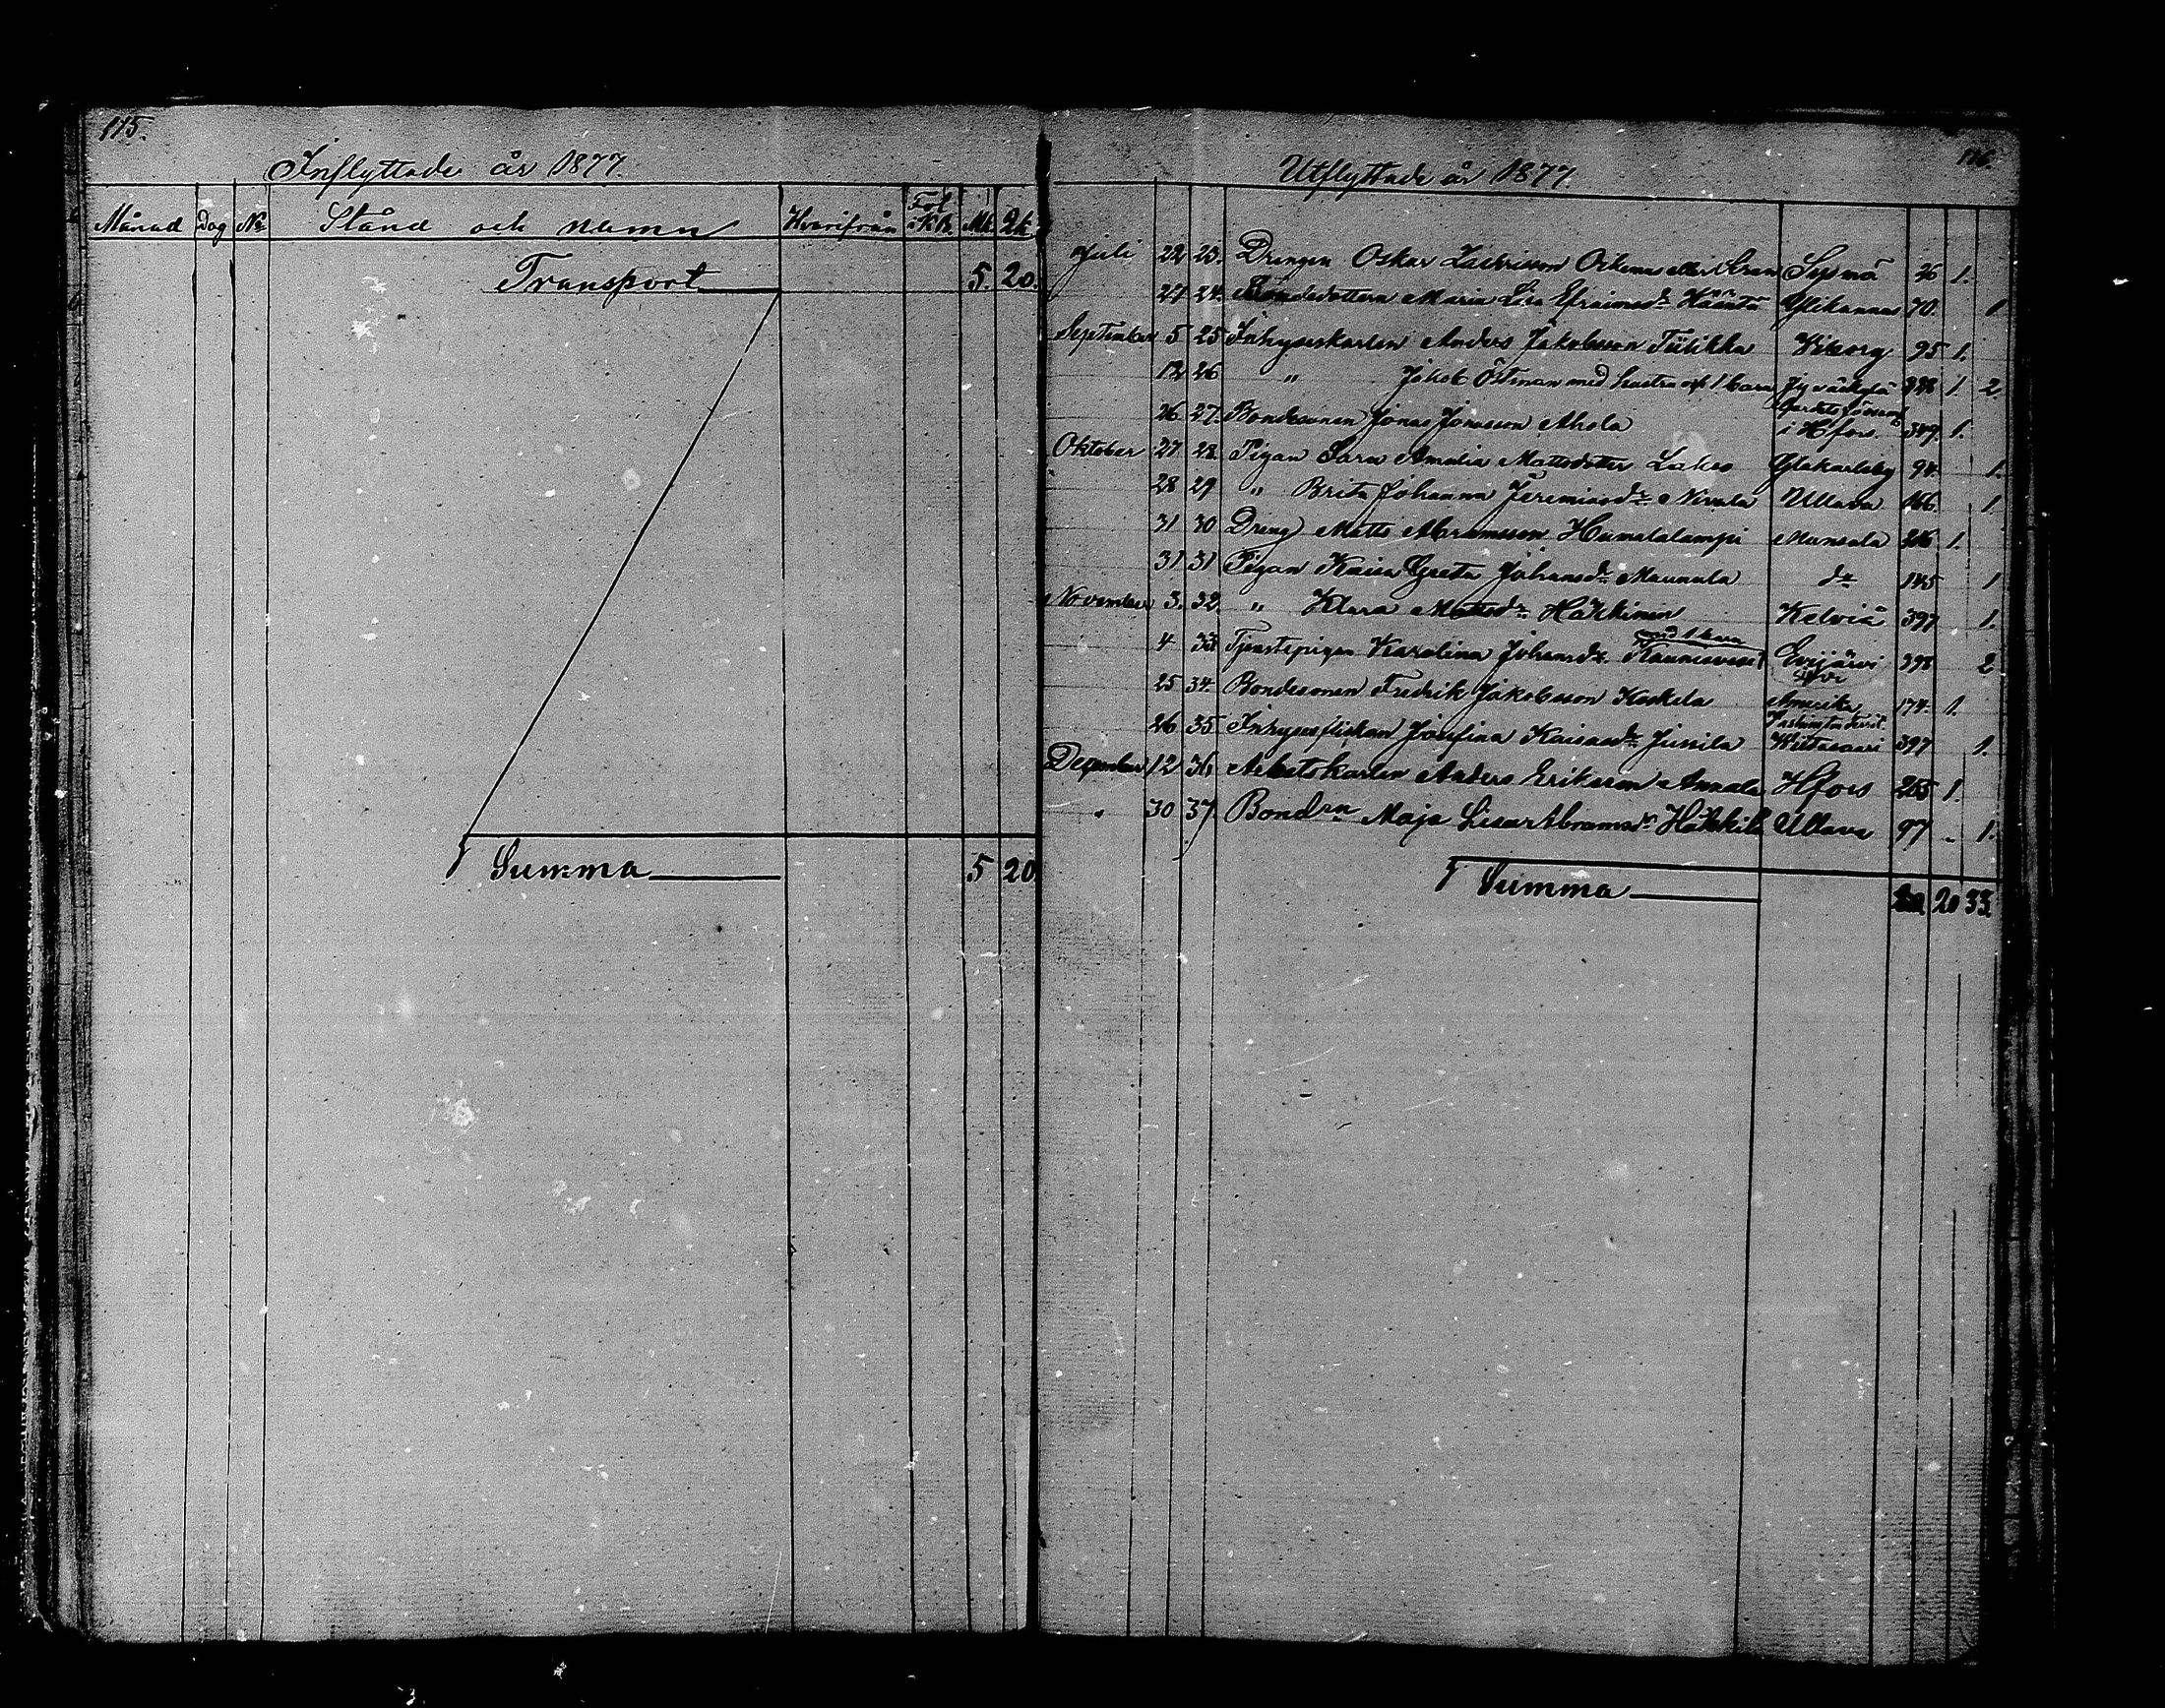 175.
Inflyttade år 1877.
Månad Dag No Stånd och namn Hvarifrån Fol i K.B. Mk. Qk.
Transport 5. 20.
Summa 5 20
176.
Utflyttade år 1877.
Juli 22 23. Drengen Oskar eller Sysmä 26 1.
27 24. Bondedottern Maria Lisa Efraimsdr Häintö 70. 1
September 5 25 Inhyseskarlen Anders Jakobsson Tiilikka Viborg 95 1.
12 26 " Jakob Östman med hustru och 1 barn Jyväskylä 398 1. 2
26. 27. Bondesonen Jonas Jonasson Ahola i Hfors. 349. 1.
Oktober 27 28. Pigan Sara Amalia Mattsdotter Lakso Glakarleby 94. 1.
28 29 " Brita Johanna Jeremiasdr Nivala Ullava 166. 1
31 30 Dreng Matts Abramsson Humalalampi Munsala 286 1.
31 31 Pigan Kaisa Greta Johansdr Maunula dr 145 1
November 3. 32. " Klara Mattsdr Häkkinen Kelviä 397 1.
med 1 barn
4 33 Tjenstepigan Karolina Johansdr Evijärvi 398 2
25 34. Bondesonen Fredrik Jakobsson Koskela Amerika 174. 1.
26 35 Inhysesflickan Josefina Kaisasdr Jussila Viitasaari 397 1.
December 12 36 Arbetskarlen Anders Eriksson Annala Hfors 265 1.
" 30 37. Bondrn Maja Lisa Abramsdr Ullava 97 " 1.
Summa 20 33.